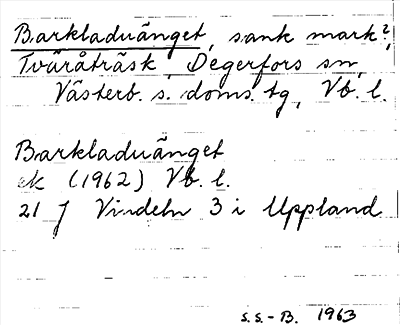 Barkladuänget, sank mark?,
Tväråträsk, Degerfors sn,
Västerb. s. doms. tg, Vb. l.
Barkladuänget
ek (1962) Vb. l.
21 J Vindeln 3 i Uppland
S.S.-B. 1963